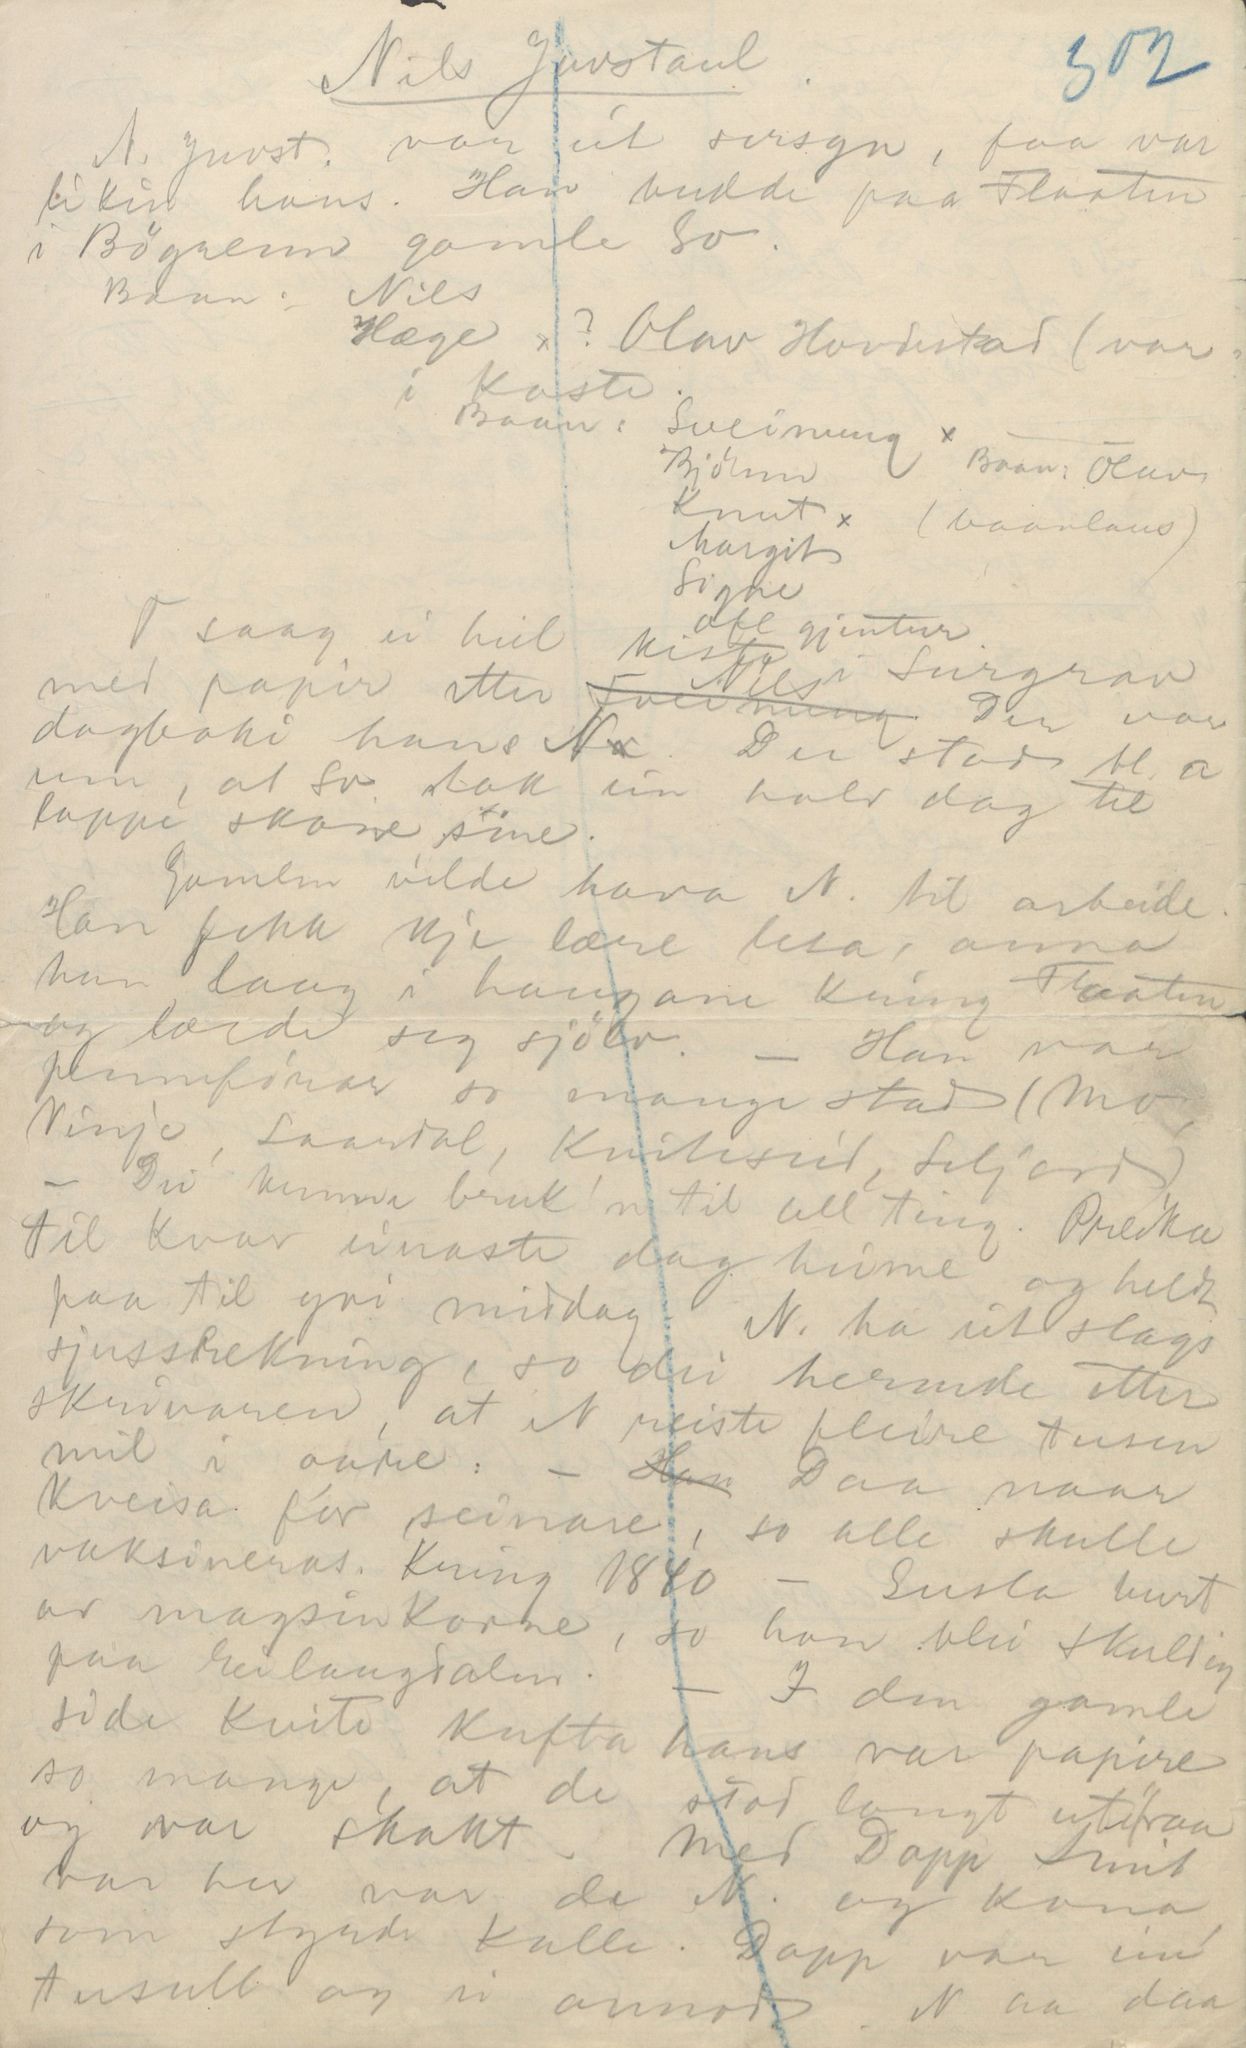 Nils Juvstaul.
302
N. Juvst. var eit sersyn, faa var
likin hans. Han budde paa Flaaten
i Bögrenn gamle so.
Baan: Nils
Hæge x ? Olav Hovdestad (var
i kaste.
Baan: Sveinung x Baan: Olav
Björnn
Knut x (baanlaus)
Margit
Signe
att gjentur
I saag ei heil kista i Sürgrav
med papir etter Sveinung Nils Der var
dagboki hans N. Der stod bl. a
um, at So tok ein halv dag til
lappe skorne sine.
Gamlen vilde hava N. til arbeide.
Han fekk kje lære lesa, anna
han laag i haugane kring Flaaten
og lærde seg sjölv. — Han var
pennförar so mange stad (Mo,
Vinje, Laardal, Kviteseid, Seljord)
— Dei kunne bruk'n til all ting. Preika
til kvar einaste dag heime og heldt
paa til yvi middag. N. ha eit slags
sjusskrekning, so dei hermde etter
skrivaren, at N reiste fleire tusen
mil i aaret. — Han Daa naar
kveisa for seinare, so alle skulle
vaksineras. Kring 1840 — Susla burt
av magsinkorne, so han blei skuldig
paa Eilaugdalen. — I den gamle
side kvite kufta hans var papire
so mange, at de stod langt utifraa
og var skakt. Med Dapp Smit
var her var de N. og kona,
som styrde kalle. Dapp var ein
tusull og ei annod. N aa daa